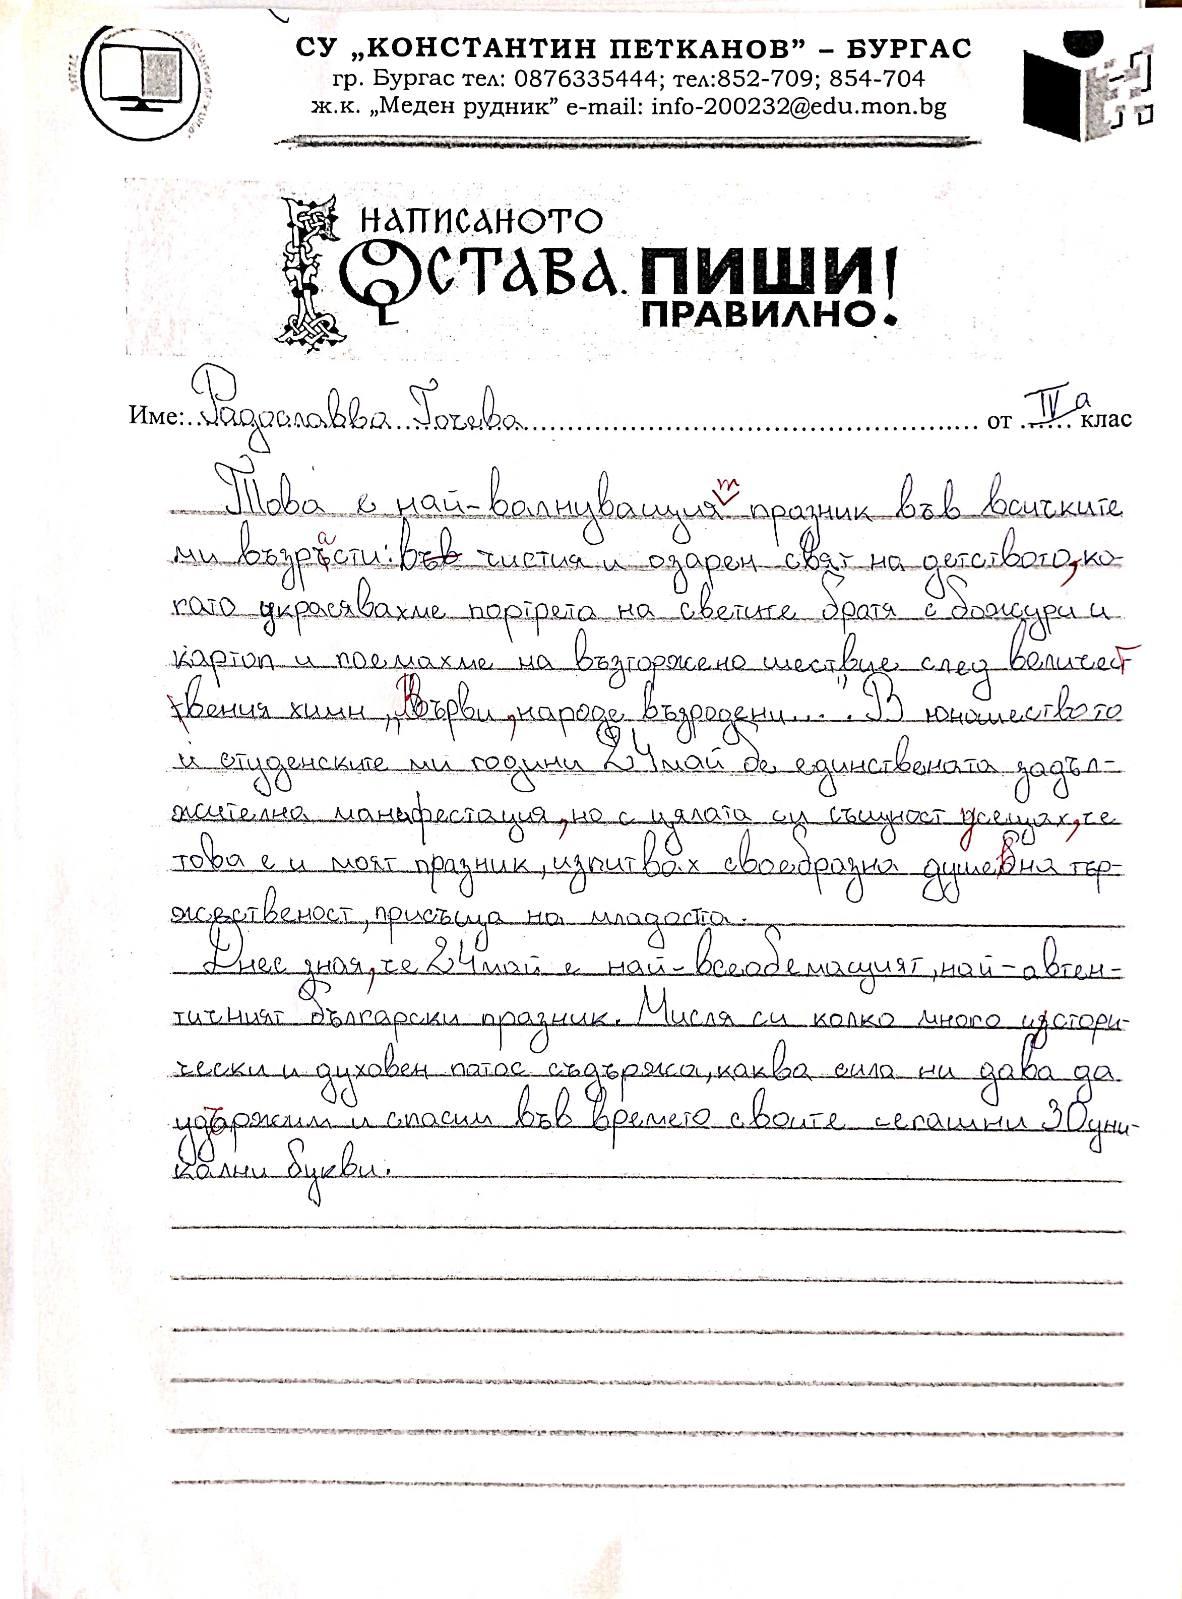 СУ „КОНСТАНТИН ПЕТКАНОВ” – БУРГАС
гр. Бургас тел: 0876335444; тел:852-709; 854-704
ж.к. „Меден рудник” e-mail: info-200232@edu.mon.bg
НАПИСАНОТО
ОСТАВА. ПИШИ
ПРАВИЛНО!
Име: Радославва Гочева от IV а клас
Това е най-валнуващият празник във всичките
ми възрасти: във чистия и озарен свят на детството, ко-
гато украсявахме портрета на светите братя с божури и
картоп и поемахме на възторжено шествие след величест
вения химн „Върви, народе възродени...”. В юношеството
и студенските ми години 24 май бе единствената задъл-
жителна манифестация, но с цялата си същност усещах, че
това е и моят празник, изпитвах своебразна душевна тър-
жественост, присъща на младостта.
Днес зная, че 24 май е най-всеобемащият, най-автен-
тичният български празник. Мисля си колко много истори-
чески и духовен патос съдържа, каква сила ни дава да
удържим и спасим във времето своите сегашни 30 уни-
кални букви.